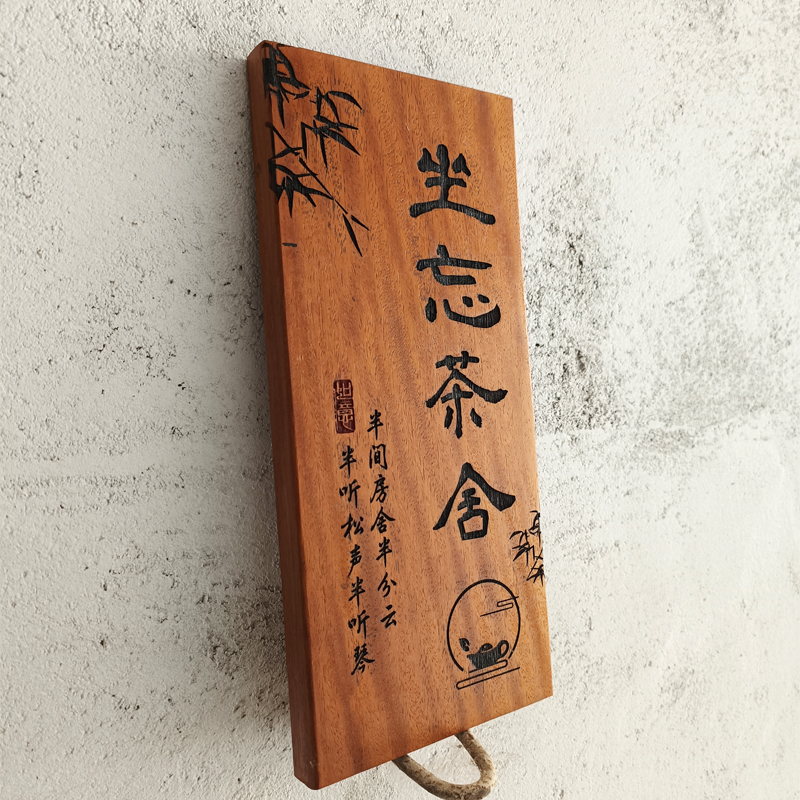 坐忘茶舍
半间房舍半分云
半听松声半听琴